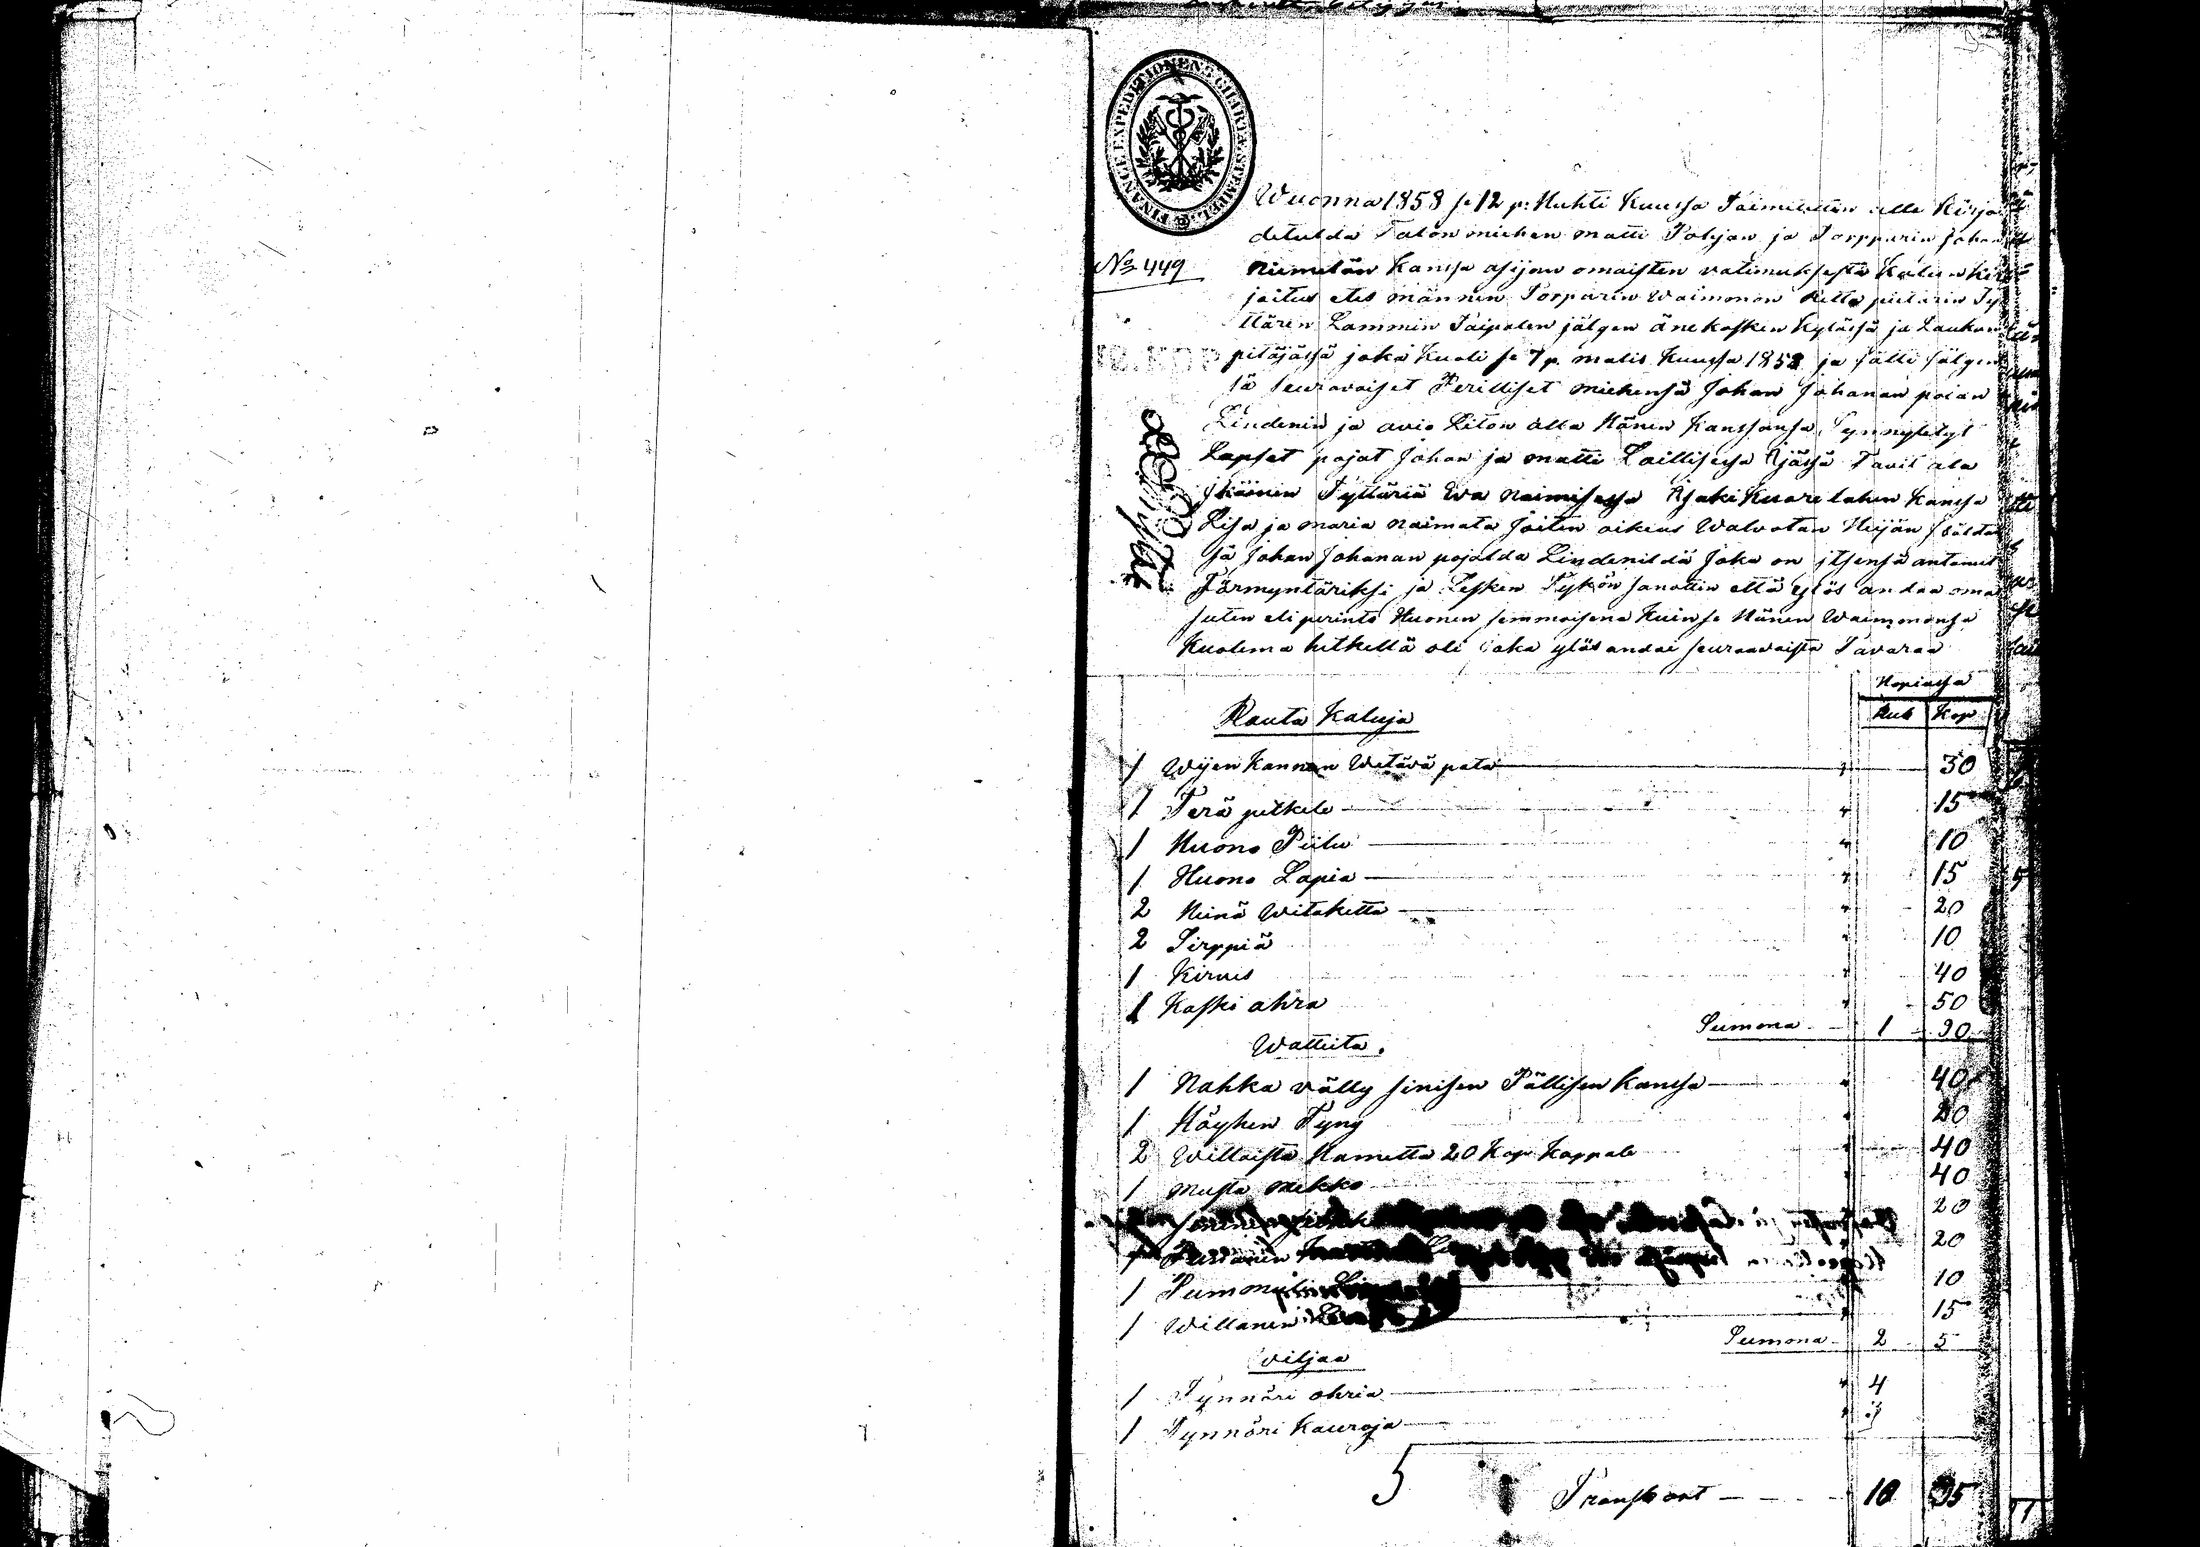 FINANCE EXPEDITIONENS CHARTÆ STEMPEL
Wuonna 1858 se 12 p: Huhti Kuussa Toimitettin alle Kirjo
detulda Talon miehen matti Pohjan ja Torpparin Johan
No 449
niemelän Kanssa asijan omaisten vatimuksesta Kalun Kir
joitus etes männen Torparin Waimonon Retta pietarin Ty
ttären Lammin Taipalen jälgen äne kosken Kylässä ja Laukan
pitäjässä joka Kuoli se 7 p. malis Kuussa 1858 ja jätti jälgen
sä seuravaiset Perilliset miehensä Johan Johanan poian
Lindenin ja avio Liton alla Hänen Kanssansa Synnytetyt
Lapset pojat Johan ja matti Laillisessa Ijässä Tavit ala
jkäinen Tyttäriä Eva naimisessa Isaki Kuorelahen Kanssa
Lisa ja maria naimata joiten oikeus Walvotan Heijän Isäldä
sä Johan Johanan pojalda Lindenildä Joka on jtsensä antanut
Förmyntäriksi ja Lesken Tykön sanottin että ylös andaa oma
suten eli perintö Huonen semmoisena Kuin se Hänen Waimmonsa
Kuolema hetkellä oli joka ylös andoi seuraavaista Tavaraa
Hopiassa
Rub Kop
Rauta Kaluja
1 Wijen Kannun Wetävä pata 30
1 Terä petkele 15
1 Huono Piilu 10
1 Huono Lapia 15
2 Heinä Witaketta 20
2 Sirppiä 10
1 Kirves 40
1 Kaski ahra 50
Summa 1 90
Watteita.
1 Nahka välly sinisen Pällisen kanssa 40
1 Höyhen Tyny 20
2 Willaista Hametta 20 Kop Kappale 40
1 musta mekko 40
1 sininen 20
1 20
1 10
1 Willanen 15
Summa 2 5
Viljaa
1 Tynnöri ohria 4
1 Tynnöri Kauroja 3
5
Transport 10 95